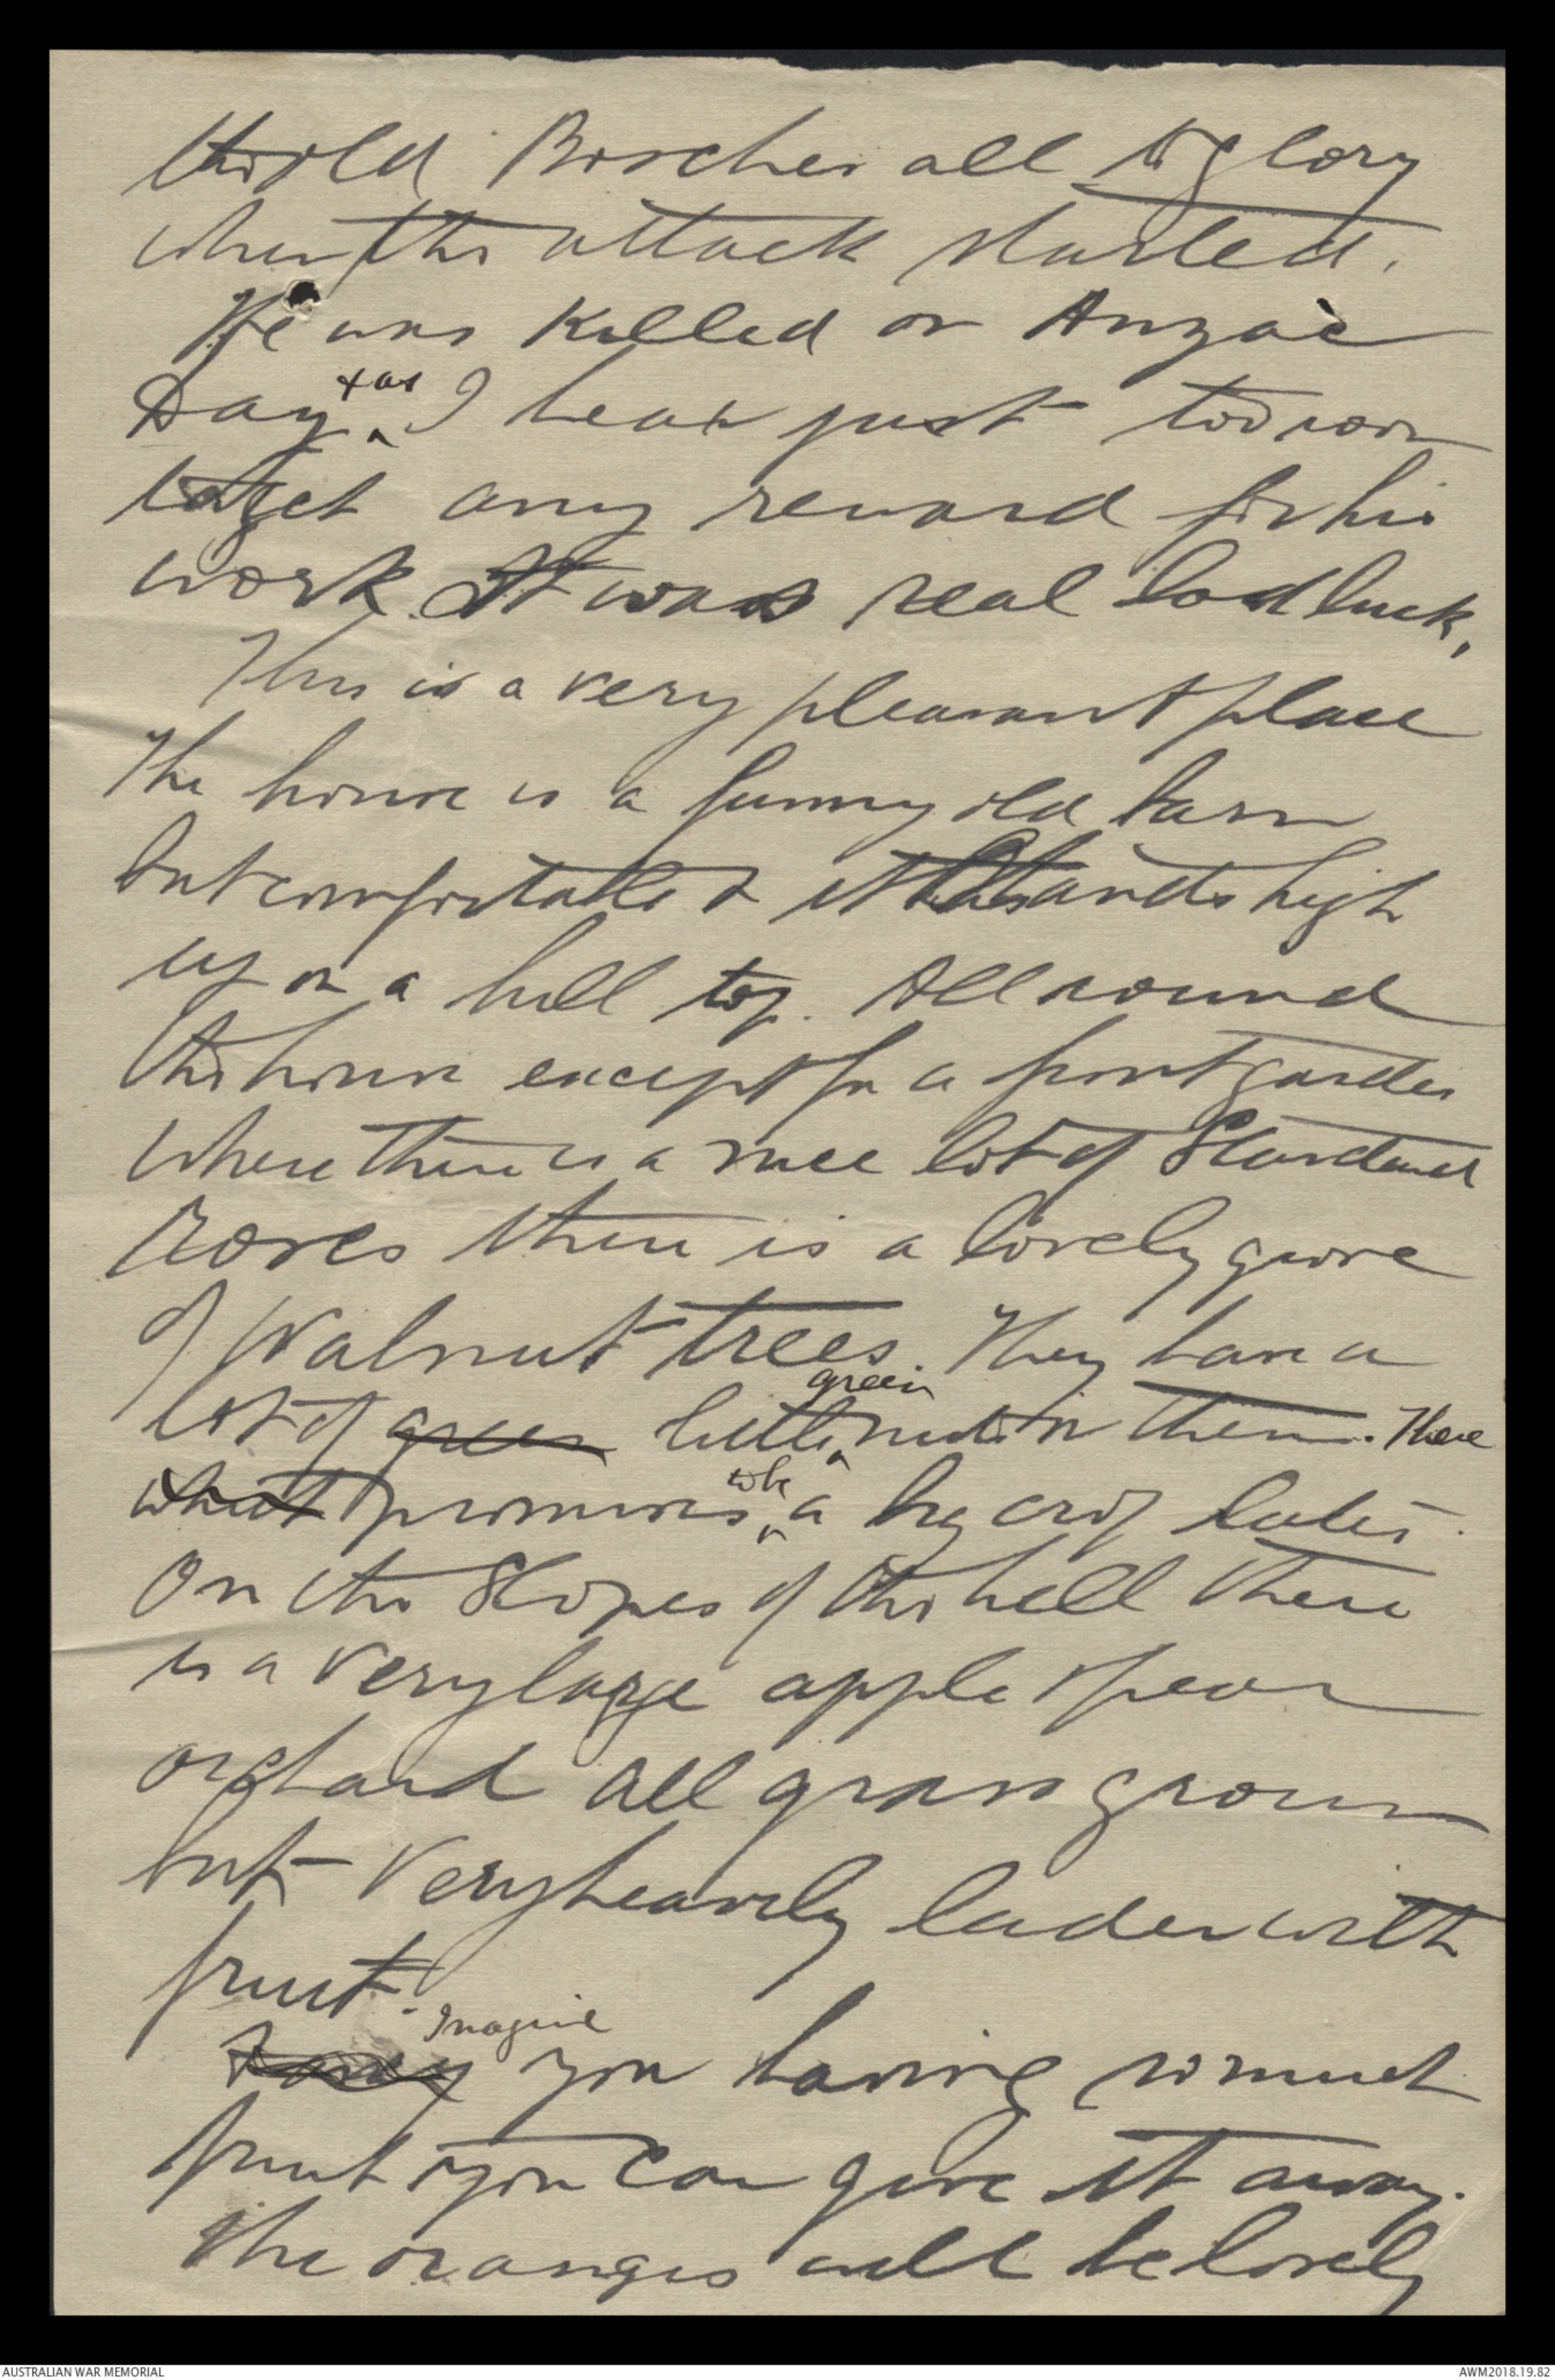 the old Bosches all to glory
when the attack started.
He was killed on Anzac
Day + as I hear just too soon
to get any reward for his
work. It was real bad luck.
This is a very pleasant place
The house is a funny old barn
but comfortable & it stands high
up on a hill top. All round
the house except for a front garden
where there is a nice lot of Standard
Roses there is a lovely grove
of Walnut trees. They have a
lot of green little green nuts on them. There
what promises to be a big crop later.
On the Slopes of the hill there
is a very large apple & pear
orchard all grass grown
but very heavily laden with
fruit.
Fancy Imagine you having so much
fruit you can give it away.
The oranges will be lovely
AUSTRALIAN WAR MEMORIAL
AWM2018.19.82